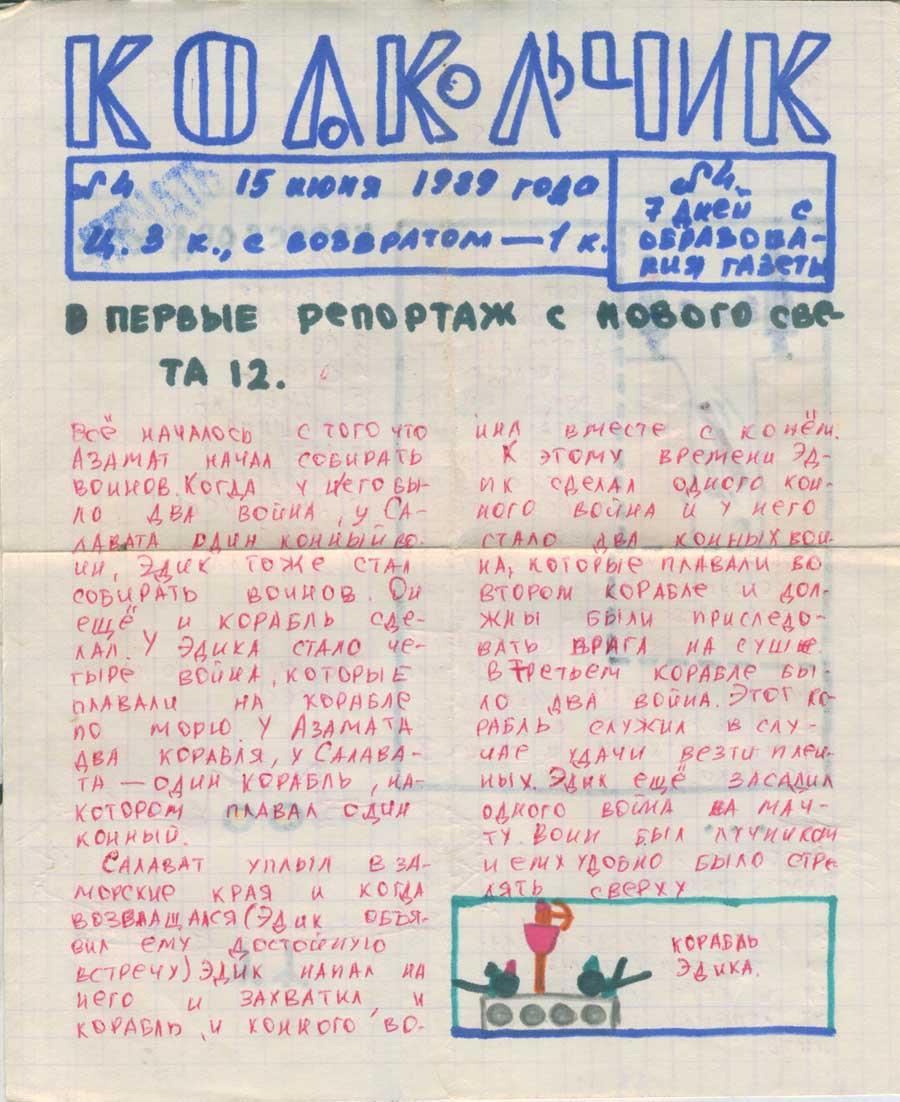 КОЛОКОЛЬЧИК
№ 4 15 июня 1989 года
Ц. 3 к., с возвратом — 1 к.
№ 4.
7 дней с
образова-
ния газеты
В ПЕРВЫЕ репортаж с нового све-
та 12.
Всё началось с того что
Азамат начал собирать
воинов. Когда у него бы-
ло два война, у Са-
лавата один конный во-
ин, Эдик тоже стал
собирать воинов. Он
ещё и корабль сде-
лал. У Эдика стало че-
тыре война, которые
плавали на корабле
по морю. У Азамата
два корабля, у Салава-
та — один корабль, на-
котором плавал один
конный.
Салават уплыл в за-
морские края и когда
возвлащался (Эдик объя-
вил ему достойную
встречу) Эдик напал на
него и захватил и
корабль, и конного во-
ина вместе с конём.
К этому времени Эд-
ик сделал одного кон-
ного война и у него
стало два конных вои-
на, которые плавали во
втором корабле и дол-
жны были приследо-
вать врага на суше.
В третьем корабле бы-
ло два война. Этот ко-
рабль служил в слу-
чае удачи везти плен-
ных. Эдик ещё засадил
одного война на мач-
ту. Воин был лучником
и ему удобно было стре-
лять сверху
корабль
Эдика.